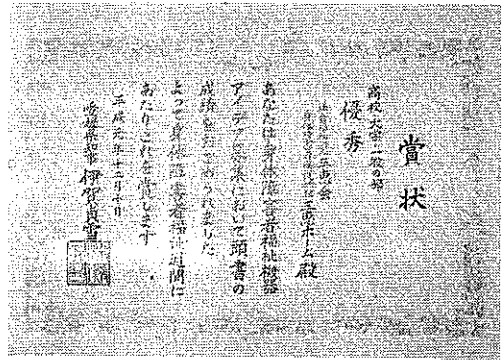 賞状
高校・大学・一般の部
優秀
三恵ホーム殿
あなたは身体障害者福祉機器
アイデア募集において頭書の
成績を収められました
よって身体障害者福祉週間に
あたりこれを賞します
平成元年十二月
愛媛県知事 伊賀貞雪